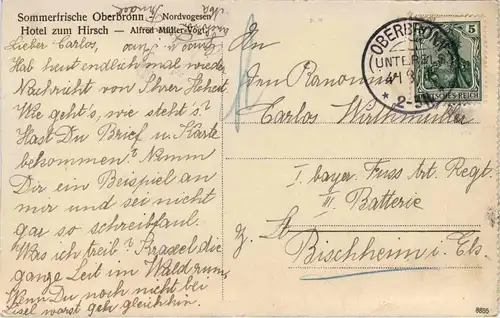 Sommerfrische Oberbronn - Nordvogesen
Hotel zum Hirsch — Alfred Müller-Vogt
Lieber Carlos,
Hab heut endlich mal wieder
Nachricht von Ihrer Hoheit.
Wie geht's, wie steht's?
Hast Du Brief u. Karte
bekommen? Nimm
Dir ein Beispiel an
mir und sei nicht
gar so schreibfaul.
Was ich treib? die
ganze Zeit im Wald rum.
Wenn Du noch nicht bei
warst geh gleich hin.
OBERBRONN
(UNTERELS.)
2-3
5
DEUTSCHES REICH
An den Kanonier
Carlos Wirthmüller
I. bayer. Fuss Art. Regt.
III. Batterie
z. Zt.
Bischheim i. Els.
8855